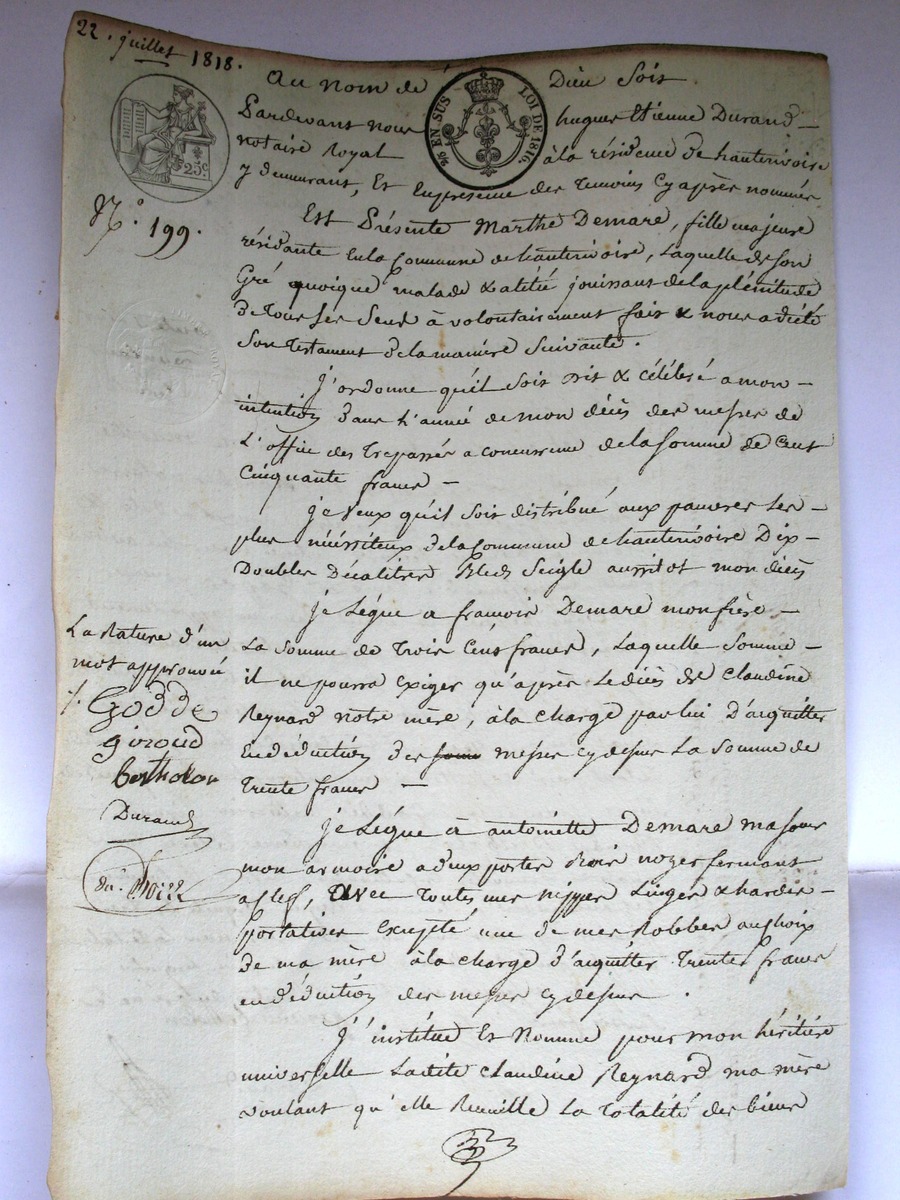 22. juillet 1818.
Au nom de Dieu Soit
Pardevant nous hugues Etienne Durand -
notaire Royal à la résidence de hauterivoire
y demeurant, Et En presence des Temoins Cy après nommés
EN SUS
LOI DE 1816.
25c.
N.º 199.
Est Présente Marthe Demare, fille majeure
résidante En la Commune de hauterivoire, Laquelle de Son
Gré quoique malade & alitée jouissant de la plénitude
de Tous Ses Sens à volontairement fait & nous a dicté
Son Testament de la maniere Suivante.
J'ordonne qu'il Soit Dit & Célébré a mon -
intention dans L'année de mon décès des messes de
L'office des Trepassés a concurrence de la Somme de Cent
Cinquante francs -
je veux qu'il Soit distribué aux pauvres Les -
plus nécéssiteux de la Commune de hauterivoire Dix -
Doubles Décalitres Bled Seigle aussitot mon décès
je Lègue a francois Demare mon frère -
La Somme de Trois Cents francs, Laquelle Somme -
il ne pourra Exiger qu'après Le décès de Claudine
Reynard notre mère, à la charge par lui D'acquitter
En déduction des messes cy dessus La Somme de
Trente francs -
je Lègue à antoinette Demare ma Soeur
mon armoire a deux portes Bois noyer fermant
a clef, avec Toutes mes nippes Linges & hardes -
portatives Excepté une de mes Robbes au choix
de ma mère à la charge d'acquitter Trente francs
en déduction des messes cy dessus.
J'institue Et Nomme pour mon héritière
universelle Ladite Claudine Reynard ma mère
voulant qu'elle Recueille La Totalité des biens
La Rature d'un
mot approuvée
Godde
giroud
bertholon
Durand